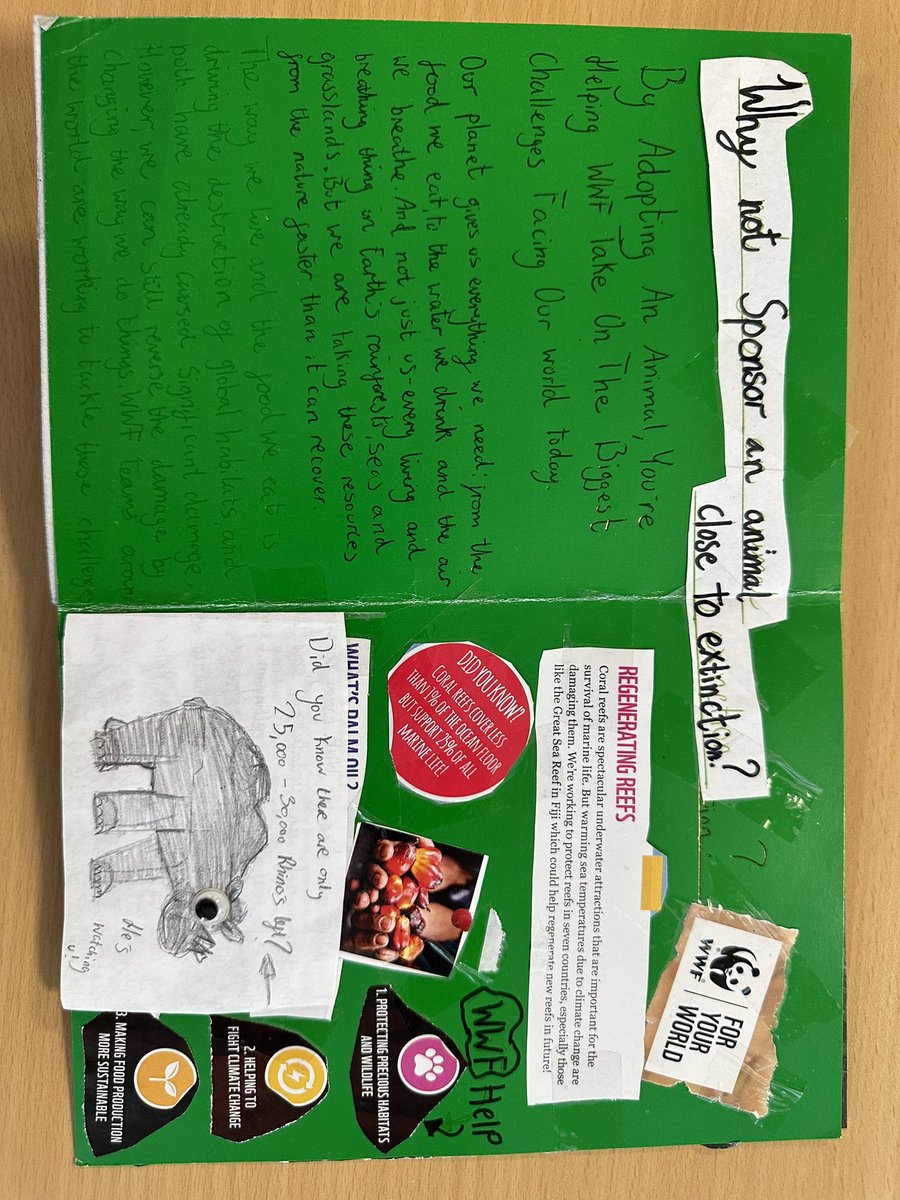 Why not Sponsor an animal
close to extinction?
By Adopting An Animal, You're
Helping WWF Take On The Biggest
Challenges Facing Our world today.
Our planet gives us everything we need, from the
food we eat, to the water we drink and the air
we breathe. And not just us - every living and
breathing thing in Earth's rainforests, seas and
grasslands. But we are taking these resources
from the nature faster than it can recover.
The way we live and the food we eat is
driving the destruction of global habitats and
both have already caused significant damage.
However, we can still reverse the damage by
changing the way we do things. WWF teams around
the world are working to tackle these challenges
WWF
FOR
YOUR
WORLD
REGENERATING REEFS
Coral reefs are spectacular underwater attractions that are important for the
survival of marine life. But warming sea temperatures due to climate change are
damaging them. We're working to protect reefs in seven countries, especially those
like the Great Sea Reef in Fiji which could help regenerate new reefs in future!
DID YOU KNOW?
CORAL REEFS COVER LESS
THAN 1% OF THE OCEAN FLOOR
BUT SUPPORT 25% OF ALL
MARINE LIFE!
WWF Help
1. PROTECTING PRECIOUS HABITATS
AND WILDLIFE
2. HELPING TO
FIGHT CLIMATE CHANGE
3. MAKING FOOD PRODUCTION
MORE SUSTAINABLE
WHAT'S PALM OIL?
Did you know there are only
25,000 - 30,000 Rhino's
He's
watching